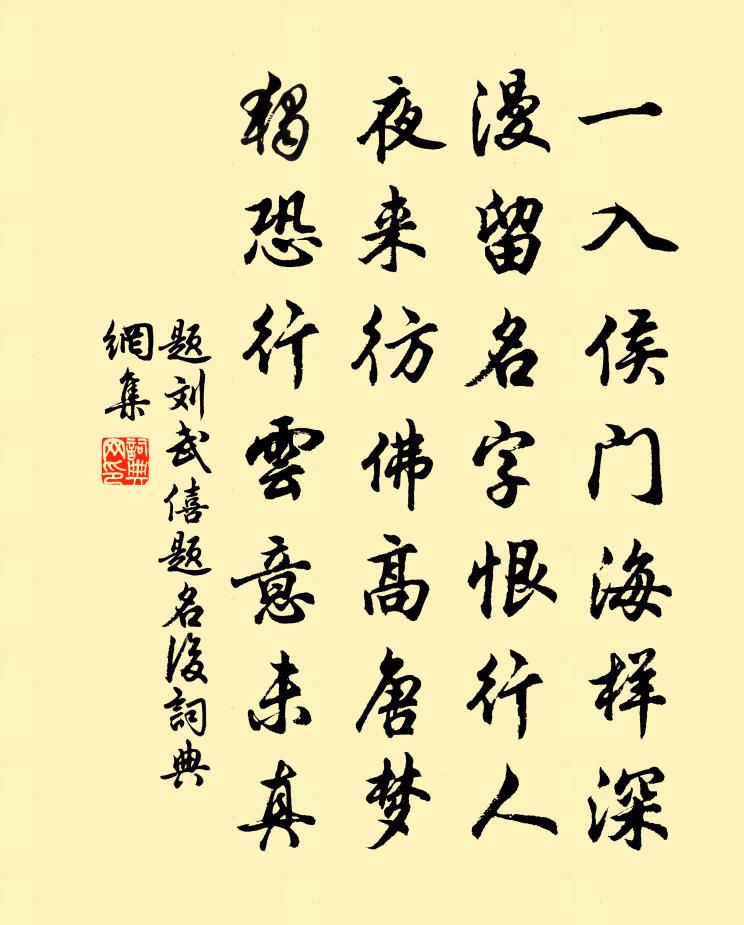 一入侯门海样深
漫留名字恨行人
夜来彷佛高唐梦
犹恐行雲意未真
题刘武僖题名後詞典
網集
詞典
网印